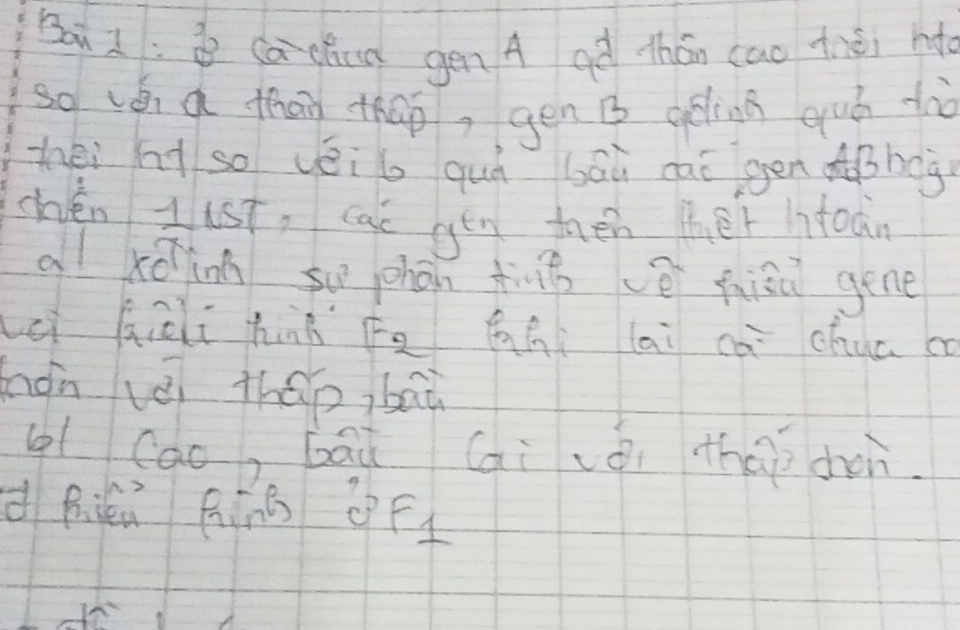 Bài 1: ở cà chua gen A qđ thân cao trội hto
so với a thân thấp, gen B qđịnh quả trò
trội ht so với b quả bầu các gen AB hcg
trên 1 NST, các gen trên lkết htoàn
a/ xđịnh sự phân tính về kiểu gene
với kiểu hình F2 khi lai cà chua ca
tròn với thấp, bầu
b/ Cao, bầu lai với thấp tròn.
d kiểu hình ở F1